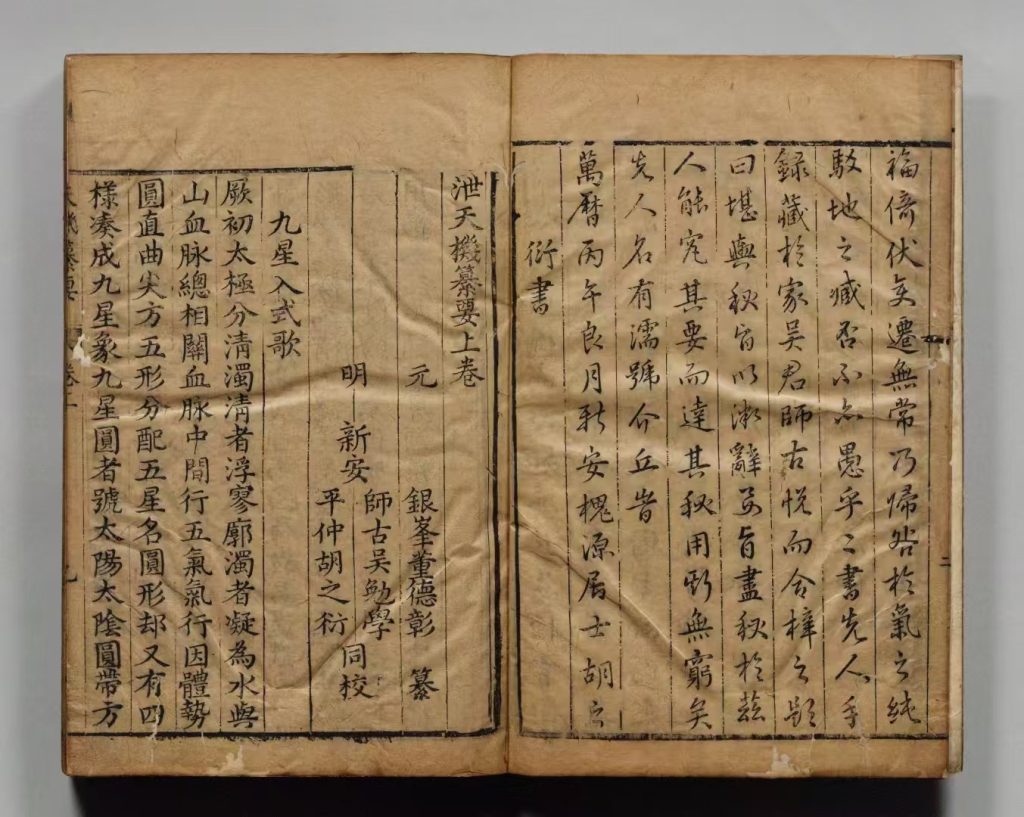 福倚伏矣遷無常乃歸咎於氣之純
駁地之臧否不亦愚乎二書先人手
錄藏於家吳君師古悅而合梓之題
曰堪輿秘旨以漱辭芳旨盡秘於茲
人能究其要而達其秘用斯無窮矣
先人名有濡號介丘者
萬曆丙午良月新安槐源居士胡之
衍書
二
泄天機纂要上卷
元 銀峯董德彰 纂
明 新安 師古吳勉學 平仲胡之衍 同校
九星入式歌
厥初太極分清濁清者浮寥廓濁者凝為水與
山血脉總相關血脉中間行五氣氣行因體勢
圓直曲尖方五形分配五星名圓形却又有四
樣湊成九星象九星圓者號太陽太陰圓帶方